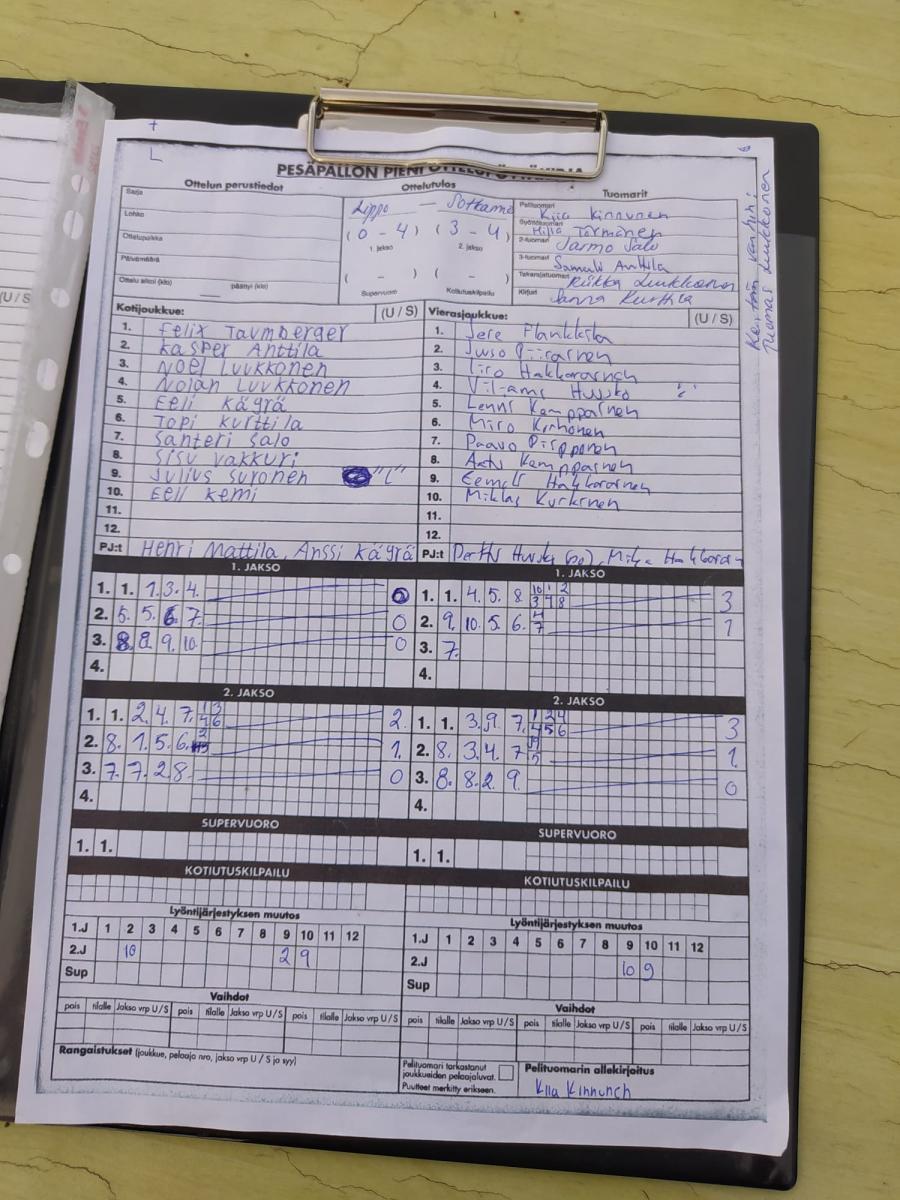 PESÄPALLON PIENI
Ottelun perustiedot
Ottelutulos
Tuomarit
Sarja
Lohko
Ottelupaikka
Päivämäärä
Ottelu alkoi (klo) päättyi (klo)
Lippo — Sotkamo
(0 - 4) (3 - 4)
1. jakso 2. jakso
( - ) ( - )
Supervuoro Kotiutuskilpailu
Pelituomari Kiia Kinnunen
Syöttötuomari Hilla Törmänen
2-tuomari Jarmo Salo
3-tuomari Samuli Anttila
Takarajatuomari Riikka Luukkonen
Kirjuri Janna Kurttila
Kentän vanhin:
Tuomas Luukkonen
Kotijoukkue: (U / S)
1. Felix Taumberger
2. Kasper Anttila
3. Noel Luukkonen
4. Nojan Luukkonen
5. Eeli Käyrä
6. Topi Kurttila
7. Santeri Salo
8. Sisu Vakkuri
9. Julius Suronen "C"
10. Eeli Kemi
11.
12.
PJ:t Henri Mattila, Anssi Käyrä
Vierasjoukkue: (U / S)
1. Jere Plankkila
2. Juuso Piirainen
3. Hakkarainen
4. Huusko
5. Kemppainen
6. Miro Korhonen
7. Paavo Piipponen
8. Aatu Kemppainen
9. Eemeli Hakkarainen
10. Miklas Kurkinen
11.
12.
PJ:t Huusko (pj), Hakkarain
1. JAKSO
1. 1. 1. 3. 4. 0
2. 5. 5. 6. 7. 0
3. 8. 8. 9. 10. 0
4.
1. JAKSO
1. 1. 4. 5. 8. 10 1 2 3 4 8 3
2. 9. 10. 5. 6. 4 7 1
3. 7.
4.
2. JAKSO
1. 1. 2. 4. 7. 1 3 4 6 2.
2. 8. 1. 5. 6. 2 1.
3. 7. 7. 2. 8. 0
4.
2. JAKSO
1. 1. 3. 9. 7. 1 2 4 4 5 6 3
2. 8. 3. 4. 7 5 1.
3. 8. 8. 2. 9. 0
4.
SUPERVUORO
1. 1.
SUPERVUORO
1. 1.
KOTIUTUSKILPAILU
KOTIUTUSKILPAILU
Lyöntijärjestyksen muutos
1.J 1 2 3 4 5 6 7 8 9 10 11 12
2.J 10 2 9
Sup
Lyöntijärjestyksen muutos
1.J 1 2 3 4 5 6 7 8 9 10 11 12
2.J 10 9
Sup
Vaihdot
pois tilalle Jakso vrp U/S pois tilalle Jakso vrp U/S pois tilalle Jakso vrp U/S
Vaihdot
pois tilalle Jakso vrp U/S pois tilalle Jakso vrp U/S pois tilalle Jakso vrp U/S
Rangaistukset (joukkue, pelaaja nro, jakso vrp U / S ja syy)
Pelituomari tarkastanut
joukkueiden pelaajaluvat.
Puutteet merkitty erikseen.
Pelituomarin allekirjoitus
Kiia Kinnunen
(U / S)